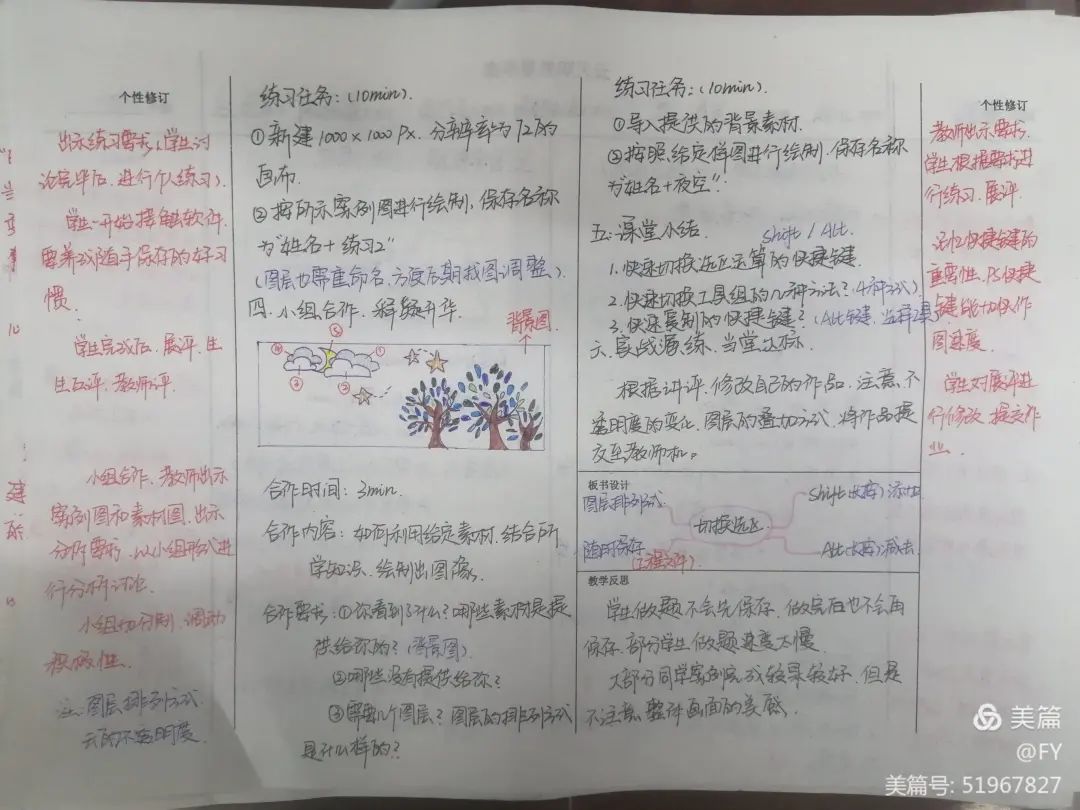 个性修订
出示练习要求,学生讨
论完毕后,进行个人练习.
学生一开始接触软件,
要养成随手保存的好习
惯.
学生完成后,展评,生
生互评,教师评
小组合作,教师出示
案例图和素材图,出示
分析要求,以小组形式进
行分析讨论
小组加分制,调动
积极性.
注:图层排列方式
云的不透明度.
练习任务:(10min).
①新建1000×1000 Px.分辨率为72的
画布.
②按所示案例图进行绘制,保存名称
为"姓名+练习2"
(图层也需重命名,方便后期找图调整)
四.小组合作,释疑升华.
背景图.
④
⑤
①
③
②
合作时间:3min.
合作内容:如何利用给定素材,结合所
学知识,绘制出图像.
合作要求:①你看到了什么?哪些素材是提
供给你的?(背景图)
②哪些没有提供给你?
③需要几个图层?图层的排列方式
是什么样的?
练习任务:(10min).
①导入提供的背景素材.
②按照给定样图进行绘制.保存名称
为"姓名+夜空".
五.课堂小结. Shift / Alt.
1.快速切换选区运算的快捷键.
2.快速切换工具组的几种方法?(4种方式)
3.快速复制的快捷键?(Alt键,
六.实战演练,当堂达标.
根据讲评,修改自己的作品,注意,不
透明度的变化,图层的叠加方式,将作品提
交至教师机。
板书设计
图层排列方式
随时保存
(工程文件)
切换选区
Shift(长按)添加
Alt(长按)减去.
教学反思
学生做题不会先保存,做完后也不会再
保存,部分学生做题速度太慢
大部分同学案例完成效果较好,但是
不注意整体画面的美感.
个性修订
教师出示要求,
学生根据要求进
行练习,展评.
记忆快捷键的
重要性,PS快捷
键能加快作
图速度.
学生对展评进
行修改,提交作
业.
美篇
@FY
美篇号: 51967827